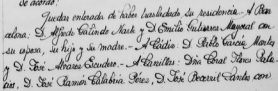 se acordó:
Quedar enterada de haber trasladado su residencia - A Bar
celona: D. Alfredo Galindo Marti y D. Emilio Gutierrez Mayoral con
su esposa, su hijo y su madre. - A Cádiz: D. Pablo Garcia Martes
y D. José Alvarez Escudero. - A Comillas: Dña Coral Flores Pala
cios, D. José Ramón Calabria Pérez, D. José Becerril Santos con